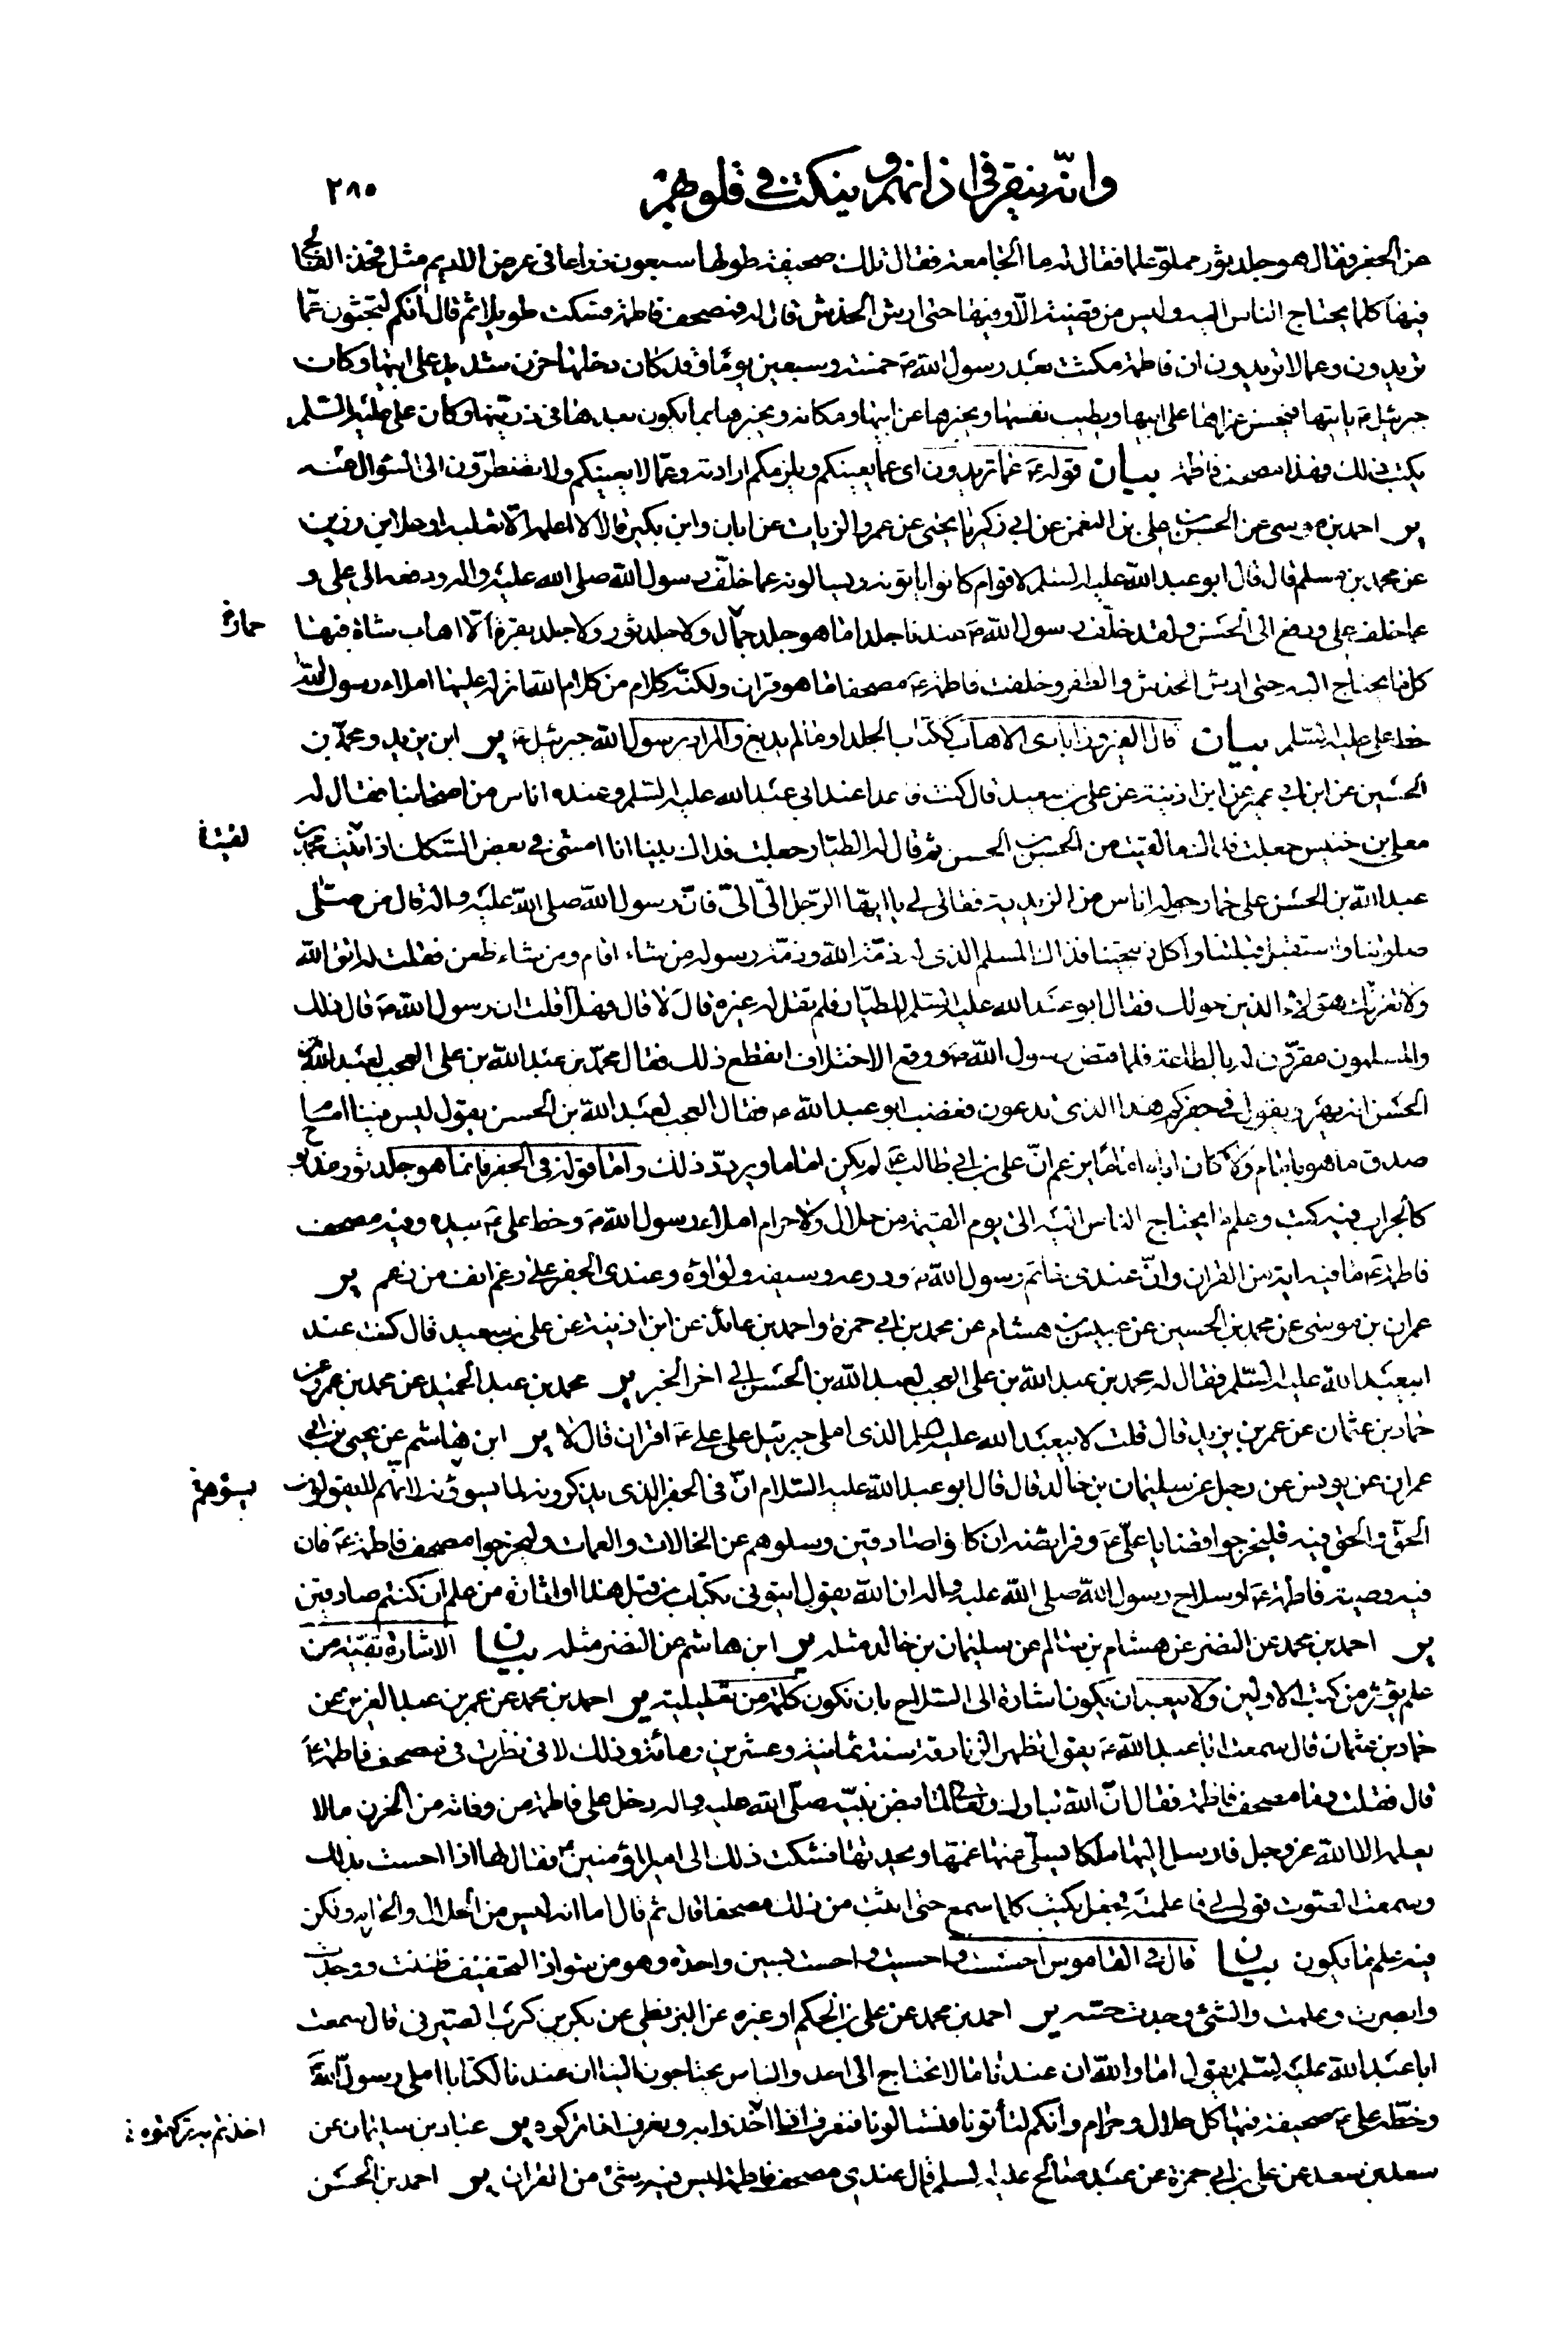 وانّه ينقر في اذانهم وينكت في قلوبهم
٢٨٥
عن الجفر فقال هو جلد ثور مملوّ علما فقال له ما الجامعة فقال تلك صحيفة طولها سبعون ذراعا في عرض الاديم مثل فخذ الفالج
فيها كلما يحتاج الناس اليه وليس من قضية الّا وفيها حتى ارش الخدش قال له فمصحف فاطمة فسكت طويلا ثم قال انكم لتبحثون عمّا
تريدون وعما لا تريدون ان فاطمة مكثت بعد رسول الله ص خمسة وسبعين يوما وقد كان دخلها حزن شديد على ابيها وكان
جبرئيل ع ياتيها فيحسن عزاها على ابيها ويطيب نفسها ويخبرها عن ابيها ومكانه ويخبرها بما يكون بعدها في ذريّتها وكان علي عليه السلم
يكتب ذلك فهذا مصحف فاطمة بيان قوله ع عما تريدون اي عما يعنيكم ويلزمكم ارادته وعمّا لا يعنيكم ولا تضطرّون الى السؤال عنه
ير احمد بن موسى عن الحسن بن علي بن النعمن عن ابي زكريا يحيى عن عمرو الزيات عن ابان وابن بكير قال لا اعلمه الّا ثعلبه او علا بن رزين
عن محمد بن مسلم قال قال ابو عبد الله عليه السلم لاقوام كانوا ياتونه ويسالونه عما خلّف رسول الله صلى الله عليه واله ودفعه الى علي و
عما خلف علي ودفع الى الحسن ولقد خلّف رسول الله ص عندنا جلدا ما هو جلد جمال ولا جلد ثور ولا جلد بقرة الّا اهاب شاة فيها
حمارة
كلما يحتاج اليه حتى ارش الخدش والظفر وخلفت فاطمة ع مصحفا ما هو قران ولكنّه كلام من كلام الله انزله عليها املاء رسول الله
خط علي عليه السلم بيان قال الفيروزابادي الاهاب ككتاب الجلد او ما لم يدبغ والمراد برسول الله جبرئيل ع ير ابن يزيد ومحمد بن
الحسين عن ابن ابي عمير عن ابن اذينة عن علي بن سعيد قال كنت قاعدا عند ابي عبد الله عليه السلم وعنده اناس من اصحابنا فقال له
معلى بن خنيس جعلت فداك ما لقيت من الحسن بن الحسن ثم قال له الطيار جعلت فداك بينا انا امشي في بعض السكك اذا لقيت محمد بن
لقيت
عبد الله بن الحسن على حمار حوله اناس من الزيدية فقال لي يا ايها الرجل اليّ اليّ فانّ رسول الله صلى الله عليه واله قال من صلّى
صلوتنا واستقبل قبلتنا واكل ذبيحتنا فذاك المسلم الذي له ذمّة الله وذمّة رسوله من شاء اقام ومن شاء ظعن فقلت له اتق الله
ولا تغرنّك هؤلاء الذين حولك فقال ابو عبد الله عليه السلم للطيّار فلم تقل له غيره قال لا قال فهلّا قلت ان رسول الله ص قال ذلك
والمسلمون مقرّون له بالطاعة فلما قبض رسول الله ص ووقع الاختلاف انقطع ذلك فقال محمد بن عبد الله بن علي العجب لعبد الله بن
الحسن انه يهزء ويقول في جفركم هذا الذي تدعون فغضب ابو عبد الله ع فقال العجب لعبد الله بن الحسن يقول ليس فينا امام
صدق ما هو بامام ولا كان ابوه اماما يزعم انّ علي بن ابي طالب ع لم يكن اماما ويردّد ذلك واما قوله في الجفر فانما هو جلد ثور مذبوح
كالجراب فيه كتب وعلم ما يحتاج الناس اليه الى يوم القيمة من حلال ولا حرام املاء رسول الله ص وخط علي ع بيده وفيه مصحف
فاطمة ع ما فيه اية من القران وانّ عندي خاتم رسول الله ص ودرعه وسيفه ولواؤه وعندي الجفر على رغم انف من زعم ير
عمران بن موسى عن محمد بن الحسين عن عبيس بن هشام عن محمد بن ابي حمزة واحمد بن عائذ عن ابن اذينة عن علي بن سعيد قال كنت عند
ابي عبد الله عليه السلم فقال له محمد بن عبد الله بن علي العجب لعبد الله بن الحسن الى اخر الخبر ير محمد بن عبد الحميد عن محمد بن عمرو عن
حماد بن عثمان عن عمر بن يزيد قال قلت لابي عبد الله عليه السلم الذي املى جبرئيل على علي ع اقران قال لا ير ابن هاشم عن يحيى بن ابي
عمران عن يونس عن رجل عن سليمان بن خالد قال قال ابو عبد الله عليه السلام انّ في الجفر الذي يذكرونه لما يسوؤه لانهم لا يقولون
يسؤهم
الحقّ والحق فيه فليخرجوا قضايا علي ع وفرائضه ان كانوا صادقين وسلوهم عن الخالات والعمات وليخرجوا مصحف فاطمة ع فان
فيه وصية فاطمة ع او سلاح رسول الله صلى الله عليه واله ان الله يقول ايتوني بكتاب من قبل هذا او اثارة من علم ان كنتم صادقين
ير احمد بن محمد عن النضر عن هشام بن سالم عن سليمان بن خالد مثله ير ابن هاشم عن النضر مثله بيان الاثارة بقيّة من
علم يؤثر من كتب الاولين ولا يبعد ان يكون اشارة الى السلاح بان تكون كلمة من تعليلية ير احمد بن محمد عن عمر بن عبد العزيز عن
حماد بن عثمان قال سمعت ابا عبد الله ع يقول تظهر الزنادقة سنة ثمانية وعشرين ومائة وذلك لاني نظرت في مصحف فاطمة ع
قال فقلت وما مصحف فاطمة فقال انّ الله تبارك وتعالى لما قبض نبيّه صلى الله عليه واله دخل على فاطمة من وفاته من الحزن ما لا
يعلمه الا الله عز وجل فارسل اليها ملكا يسلّي عنها غمّها ويحدثها فشكت ذلك الى امير المؤمنين ع فقال لها اذا احست بذلك
وسمعت الصوت قولي لي فاعلمته فجعل يكتب كلما سمع حتى اثبت من ذلك مصحفا قال ثم قال اما انه ليس من الحلال والحرام ولكن
فيه علم ما يكون بيان قال في القاموس احسست واحسيت واحست بسين واحدة وهو من شواذ التخفيف ظننت ووجدت
وابصرت وعلمت والشئ وجدت حسّه ير احمد بن محمد عن علي بن الحكم او غيره عن البزنطي عن بكر بن كرب الصيرفي قال سمعت
ابا عبد الله عليه السلم يقول اما والله ان عندنا ما لا نحتاج الى احد والناس يحتاجون الينا ان عندنا لكتابا املى رسول الله
وخطّه علي ع صحيفة فيها كل حلال وحرام وانكم لتأتونا فتسالونا فنعرف اذا اخذوا به ونعرف اذا تركوه ير عباد بن سليمان عن
اخذتم به تركتموه
سعد بن سعد عن علي بن ابي حمزة عن عبد صالح عليه السلم قال عندي مصحف فاطمة ليس فيه شئ من القران ير احمد بن الحسن